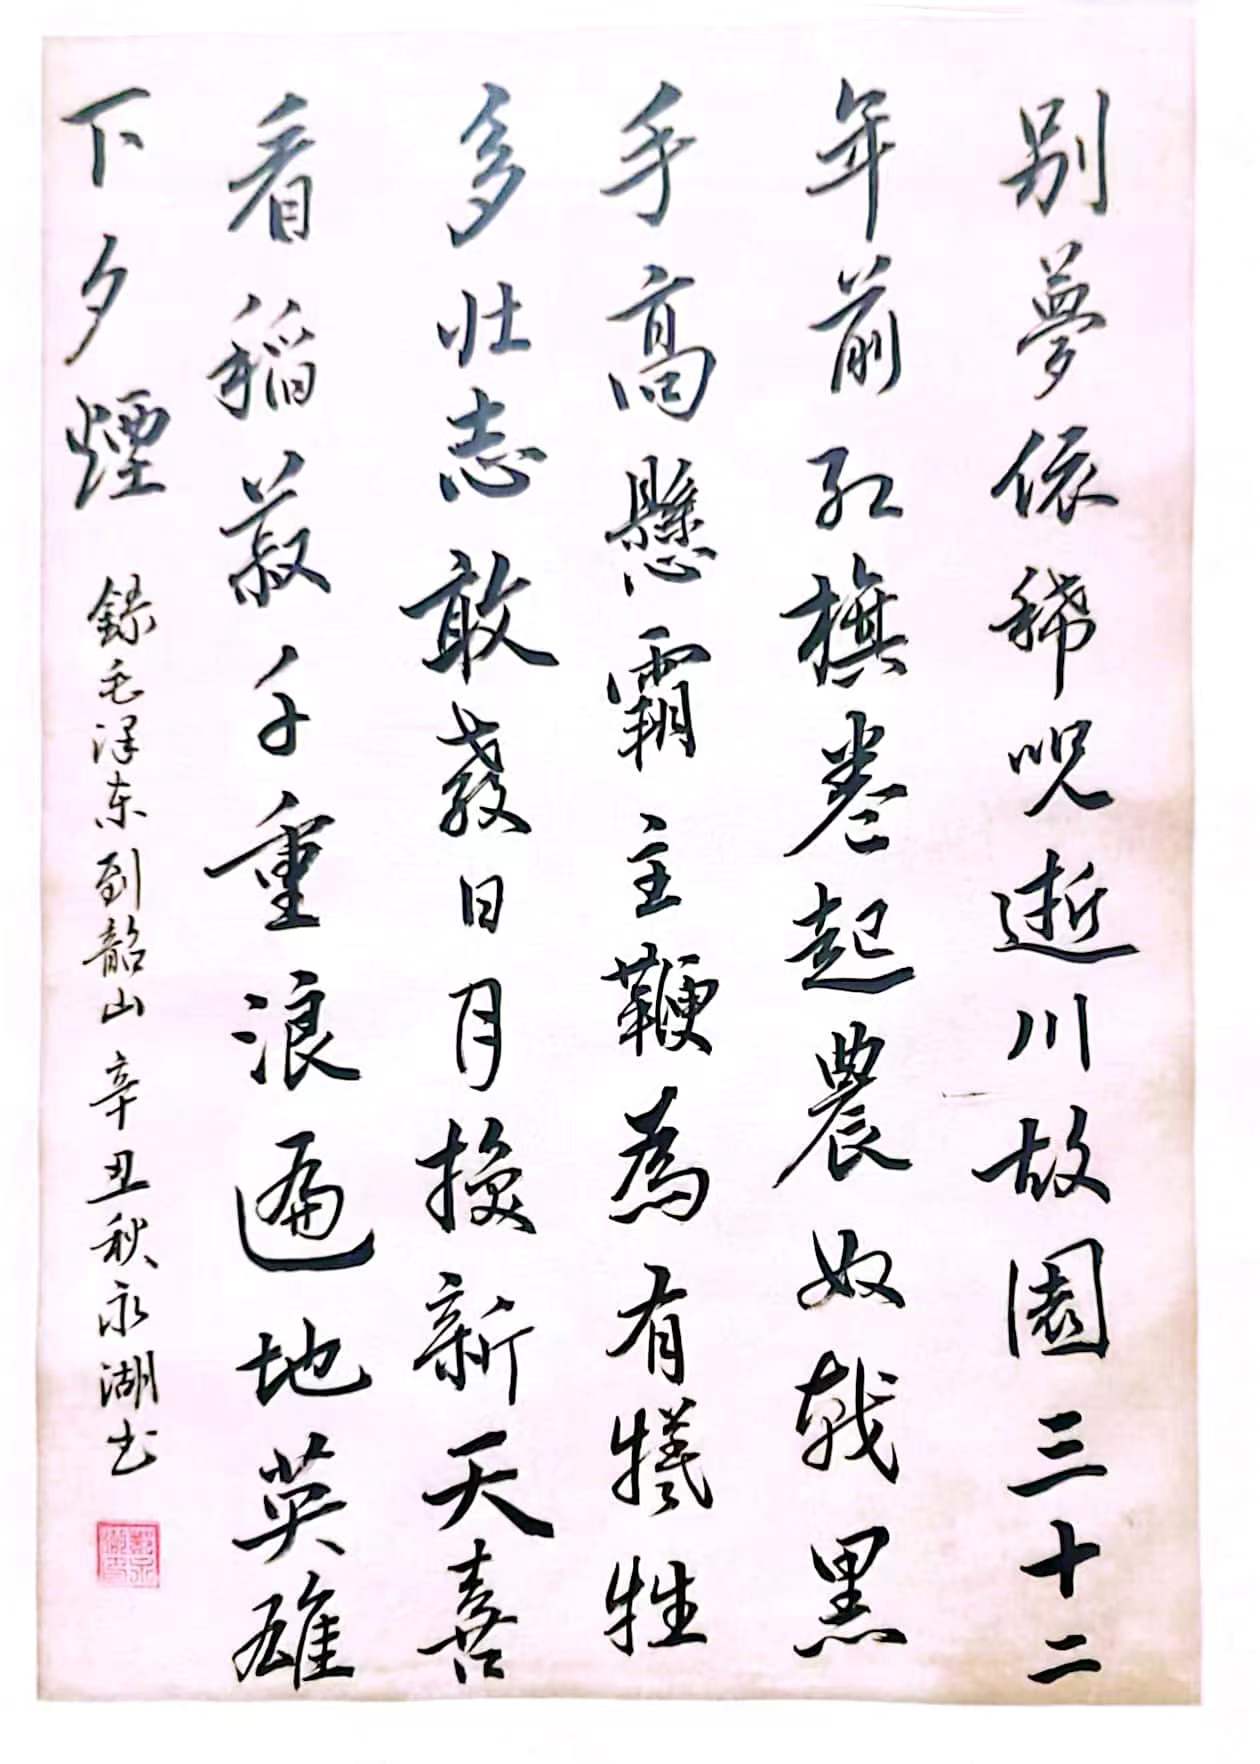 别夢依稀呪逝川故園三十二
年前紅旗卷起農奴戟黑
手高懸霸主鞭為有犧牲
多壯志敢教日月換新天喜
看稻菽千重浪遍地英雄
下夕煙
録毛泽东到韶山辛丑秋永湖书